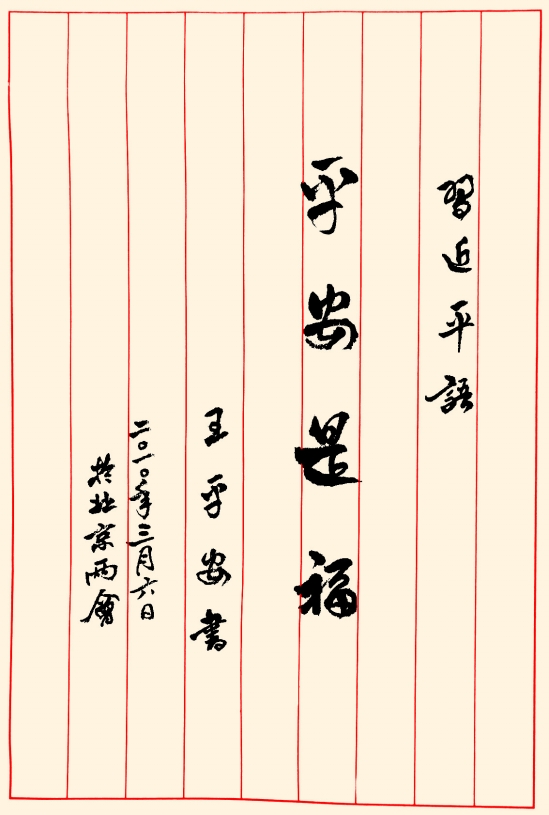 習近平語
平安是福
王平安書
二〇一〇年三月六日
於北京兩會